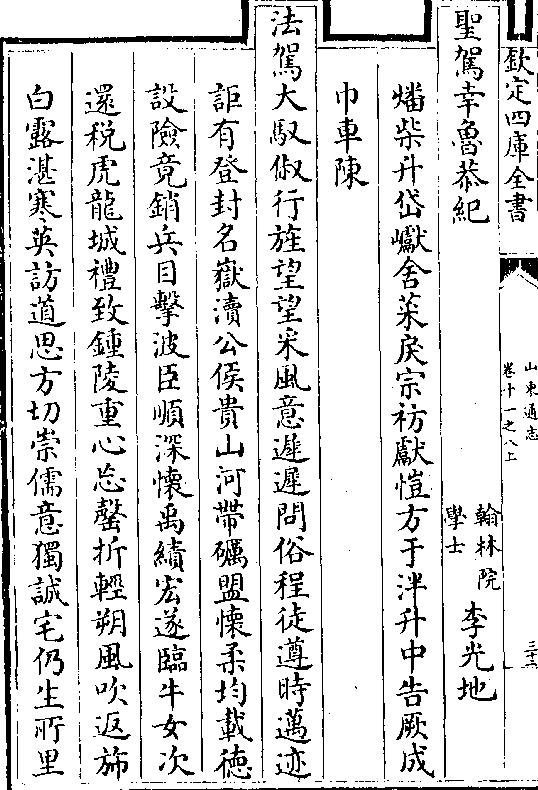 欽定四庫全書
山東通志
卷十一之八上
三十三
聖駕幸魯恭紀
翰林院
學士
李光地
燔柴升岱巘舍菜戾宗祊獻愷方于泮升中告厥成
巾車陳
法駕大馭俶行旌望望采風意遲遲問俗程徒遵時邁迹
詎有登封名嶽瀆公侯貴山河帶礪盟懷柔均載徳
設險竟銷兵目擊波臣順深懷禹績宏遂臨牛女次
還税虎龍城禮致鍾陵重心忘罄折輕朔風吹返斾
白露湛寒英訪道思方切崇儒意獨誠宅仍生所里